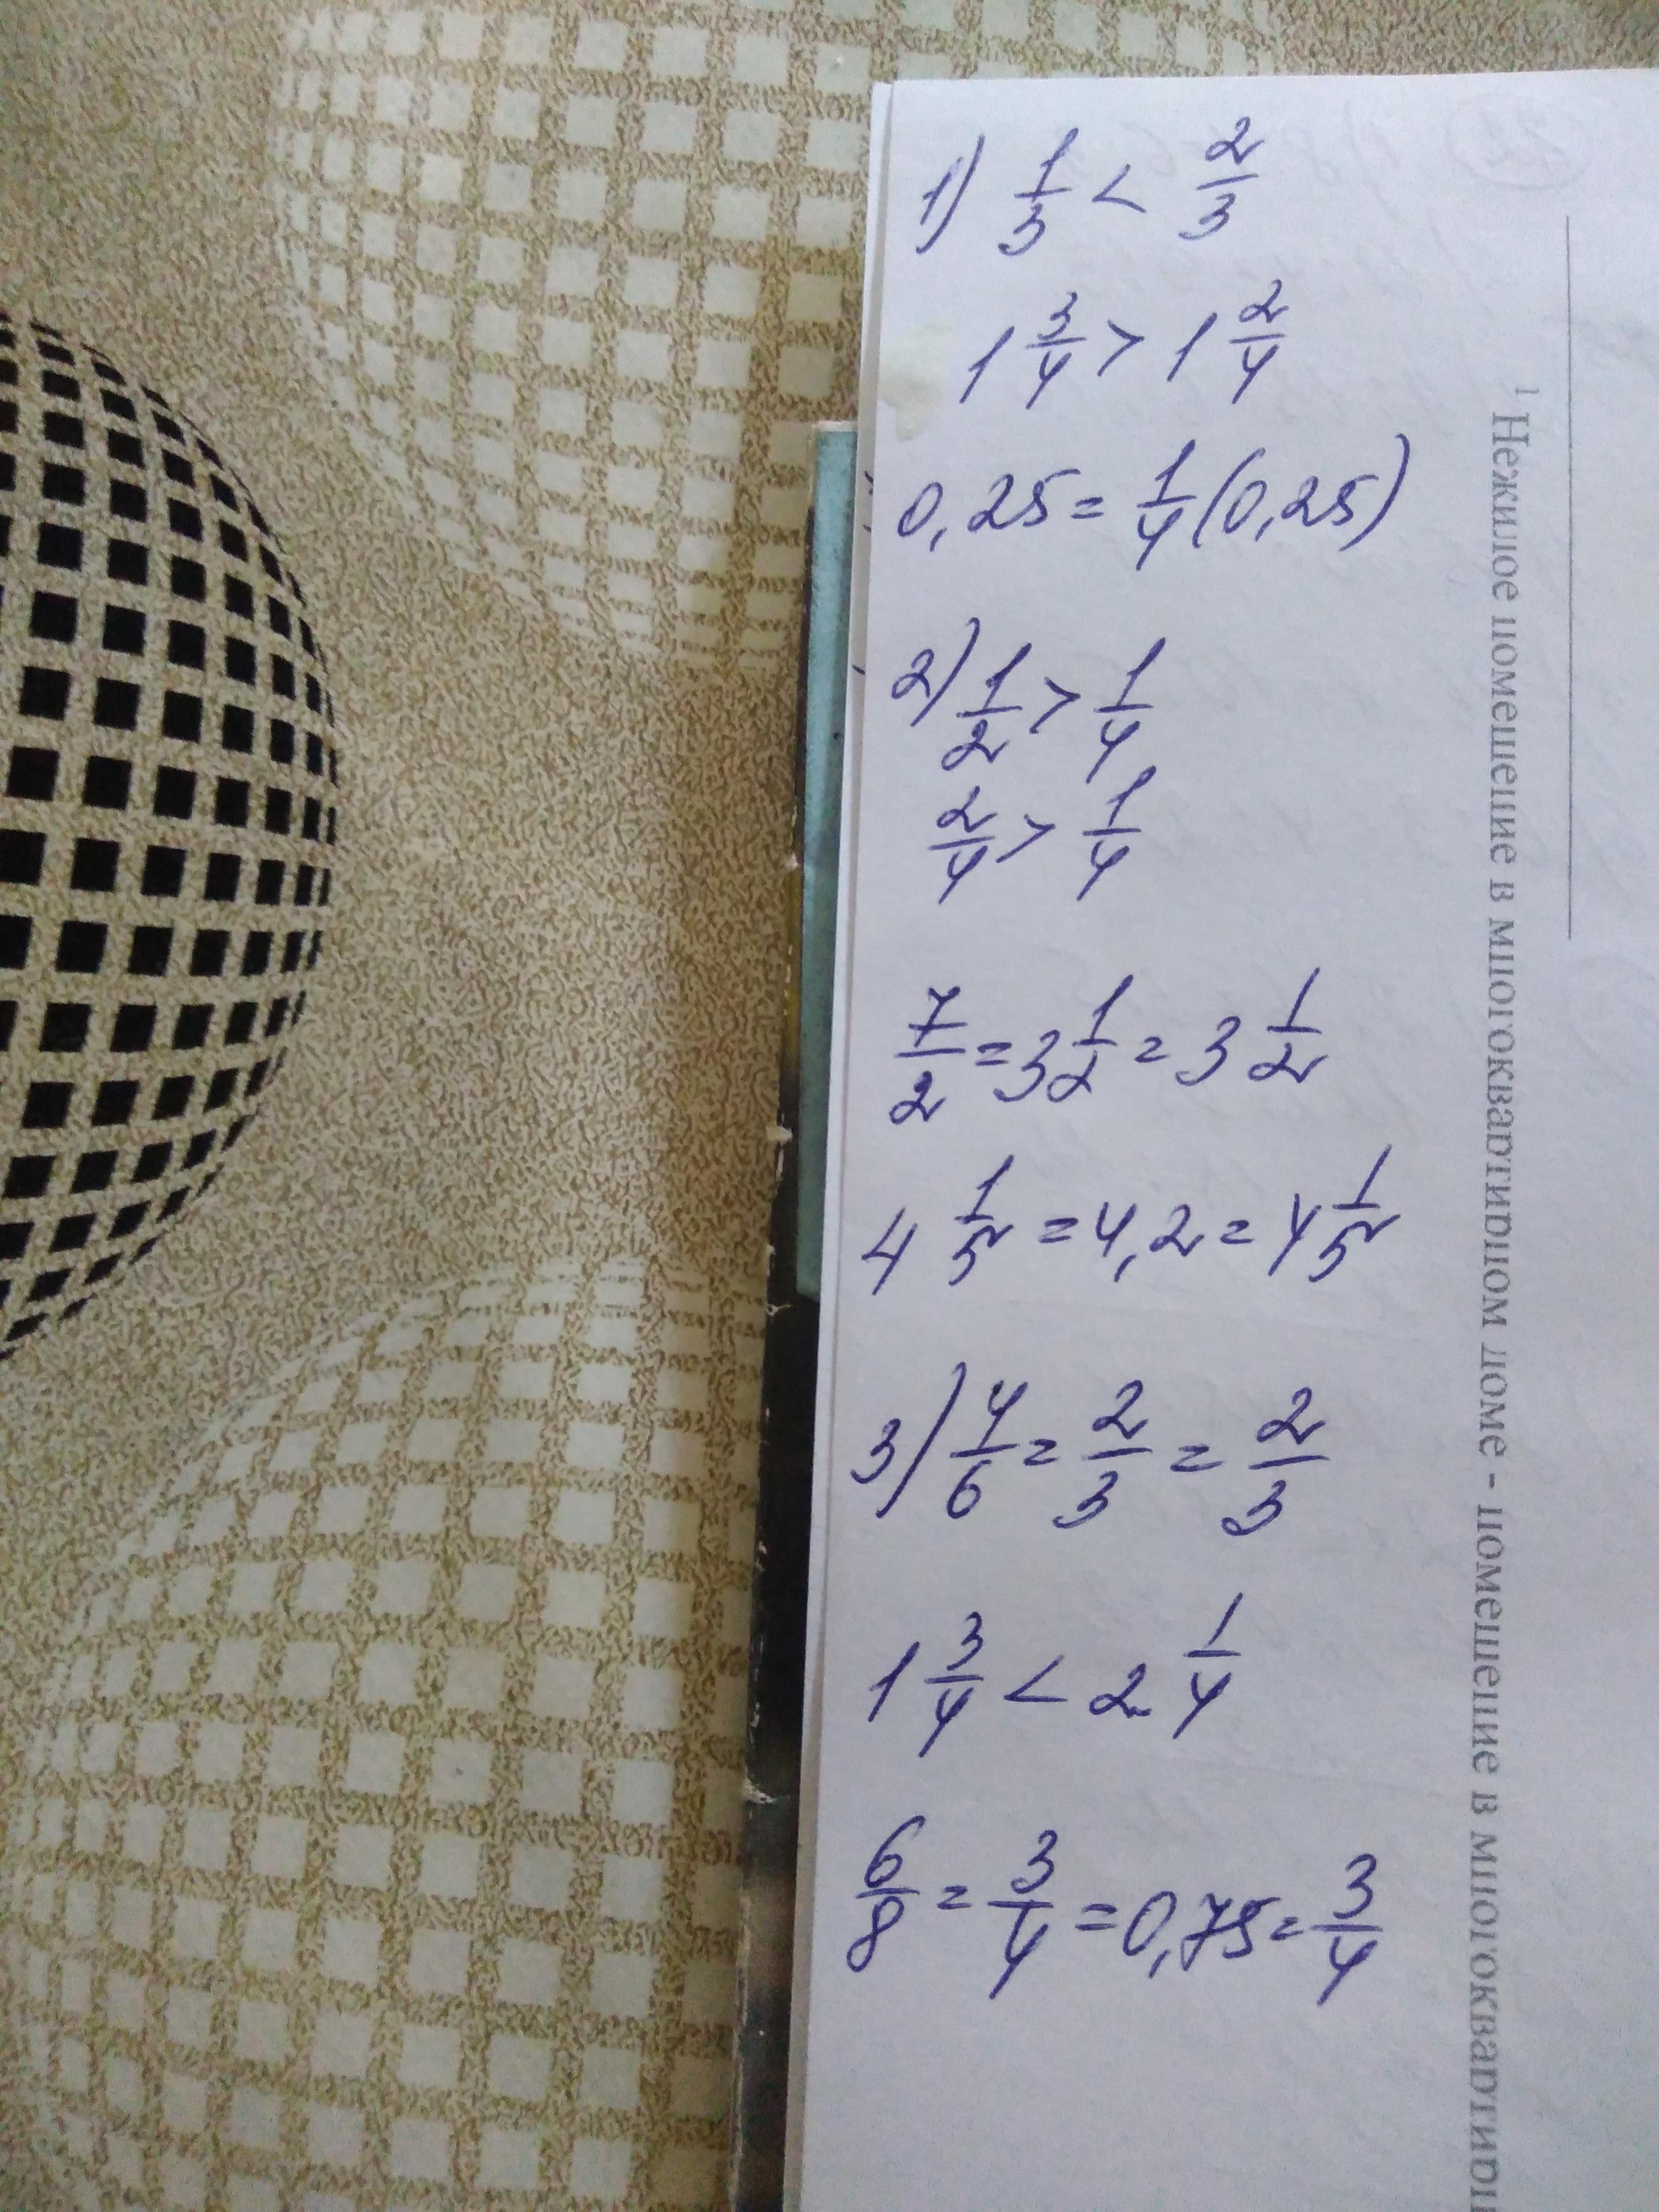 1) 1/3 < 2/3
1 3/4 > 1 2/4
0,25 = 1/4 (0,25)
2) 1/2 > 1/4
2/4 > 1/4
7/2 = 3 1/2 = 3 1/2
4 1/5 = 4,2 = 4 1/5
3) 4/6 = 2/3 = 2/3
1 3/4 < 2 1/4
6/8 = 3/4 = 0,75 = 3/4
1 Нежилое помещение в многоквартирном доме - помещение в многоквартирн